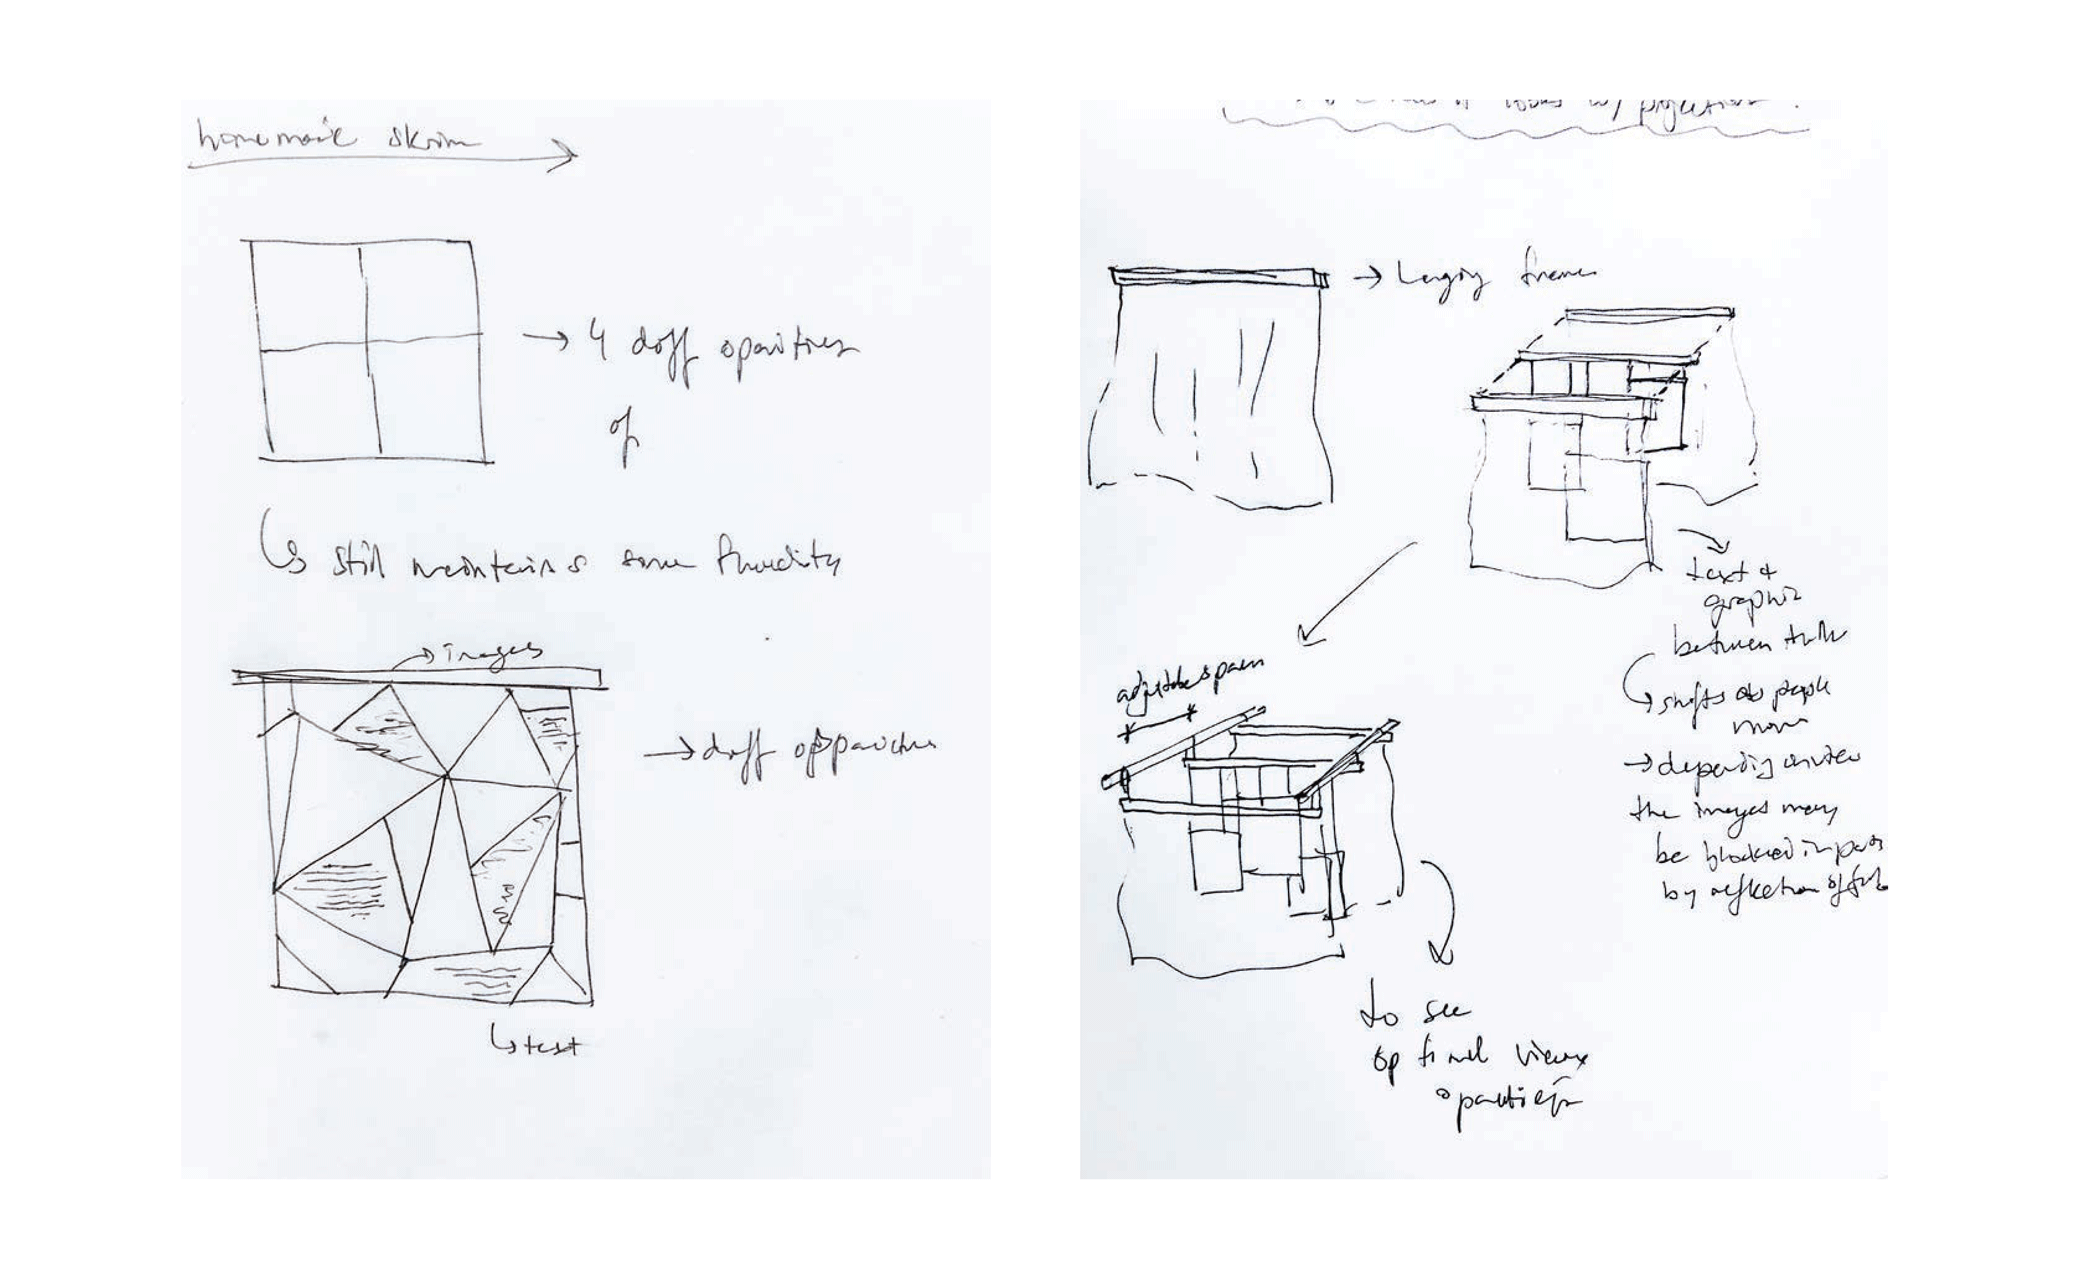 homemade skrim
→ 4 diff opacities
of
↳ still maintains some fluidity
→ images
→ diff opacities
↳ text
w/ projection
→ frame
text &
graphic
between
↳ shifts as people
move
→ depending
the images may
be blocked in parts
by reflection of
adjustable
to see
optimal views
opacities